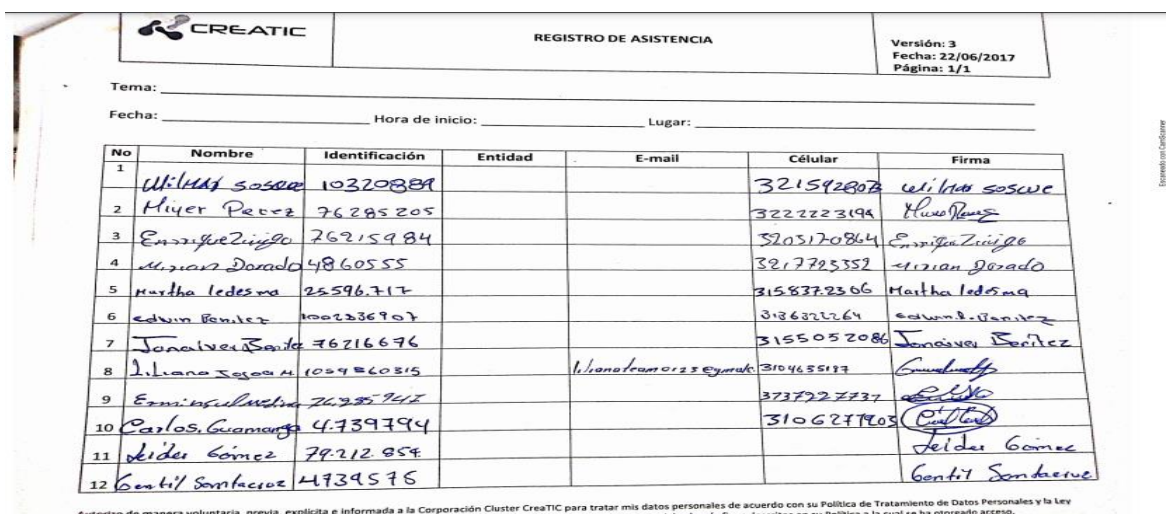 CREATIC
REGISTRO DE ASISTENCIA
Versión: 3
Fecha: 22/06/2017
Página: 1/1
Tema:
Fecha: Hora de inicio: Lugar:
No Nombre Identificación Entidad E-mail Célular Firma
1 Wilmar soscue 10320889 321592807 wilmar soscue
2 Miyer Perez 76285205 3222223194
3 Enrrique Zuñigo 76215984 3203170864 Enrriqe Zuñigo
4 Mirian Dorado 4860555 3217793352 Mirian Dorado
5 Martha ledesma 25.596.717 315.837.2306 Martha ledesma
6 edwin Benitez 1002836907 3136322264 edwin.R.Benitez
7 Jonaiver Benite 76216676 3155052086 Jonaiver Benitez
8 Liliana 1059860315 3104655187
9 3737227737
10 Carlos. Guamanga 4.739794 3106277903
11 Leider Gómez 79.212.854 Leider Gómez
12 Gentil Santacruz 4739576 Gentil Santacruz
Autorizo de manera voluntaria, previa, explicita e informada a la Corporación Cluster CreaTIC para tratar mis datos personales de acuerdo con su Política de Tratamiento de Datos Personales y la Ley
en su Política a la cual se ha otorgado acceso.
Escaneado con CamScanner